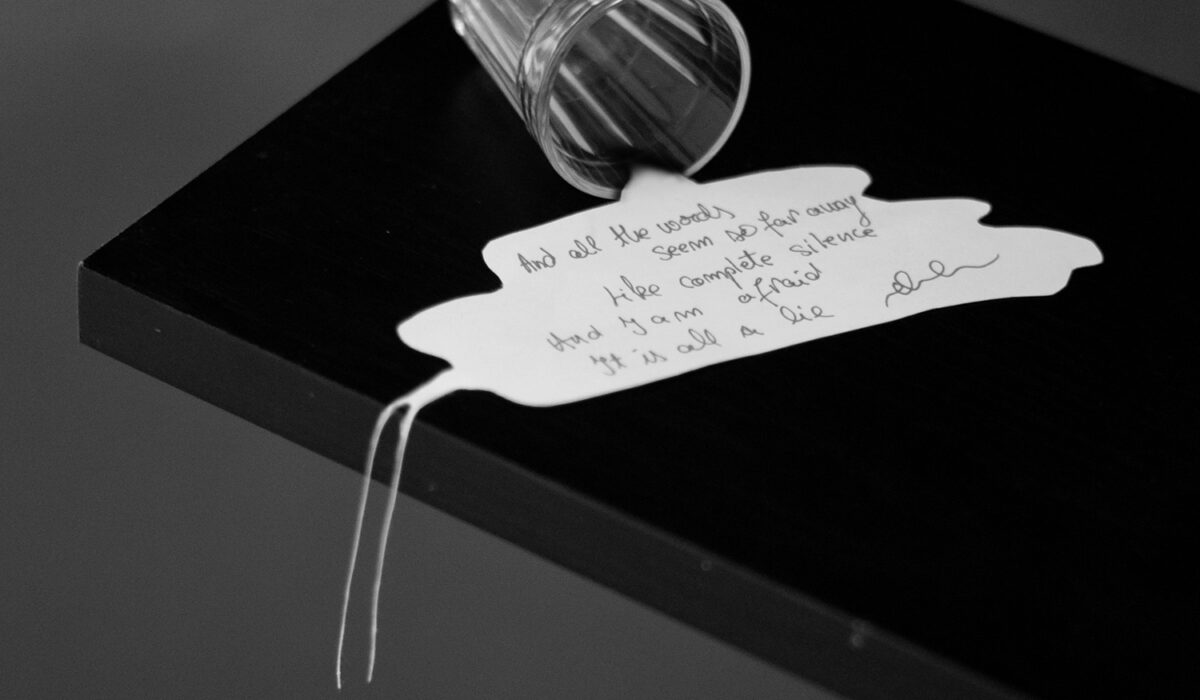 And all the words
seem so far away
Like complete silence
And I am afraid
It is all a lie